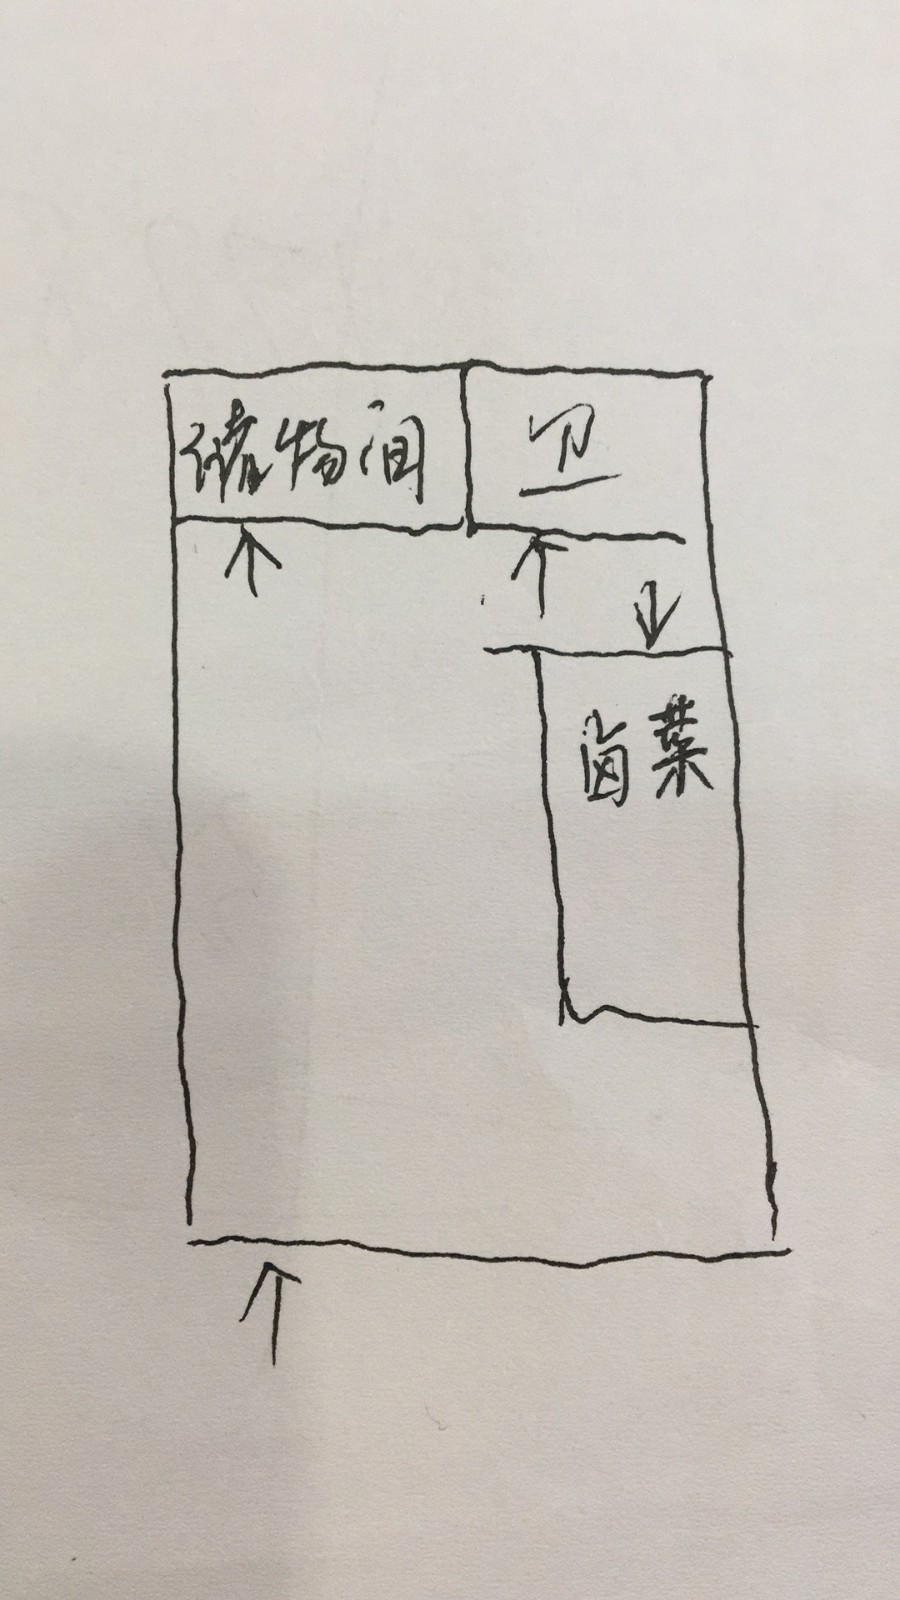 储物间
卫
卤菜